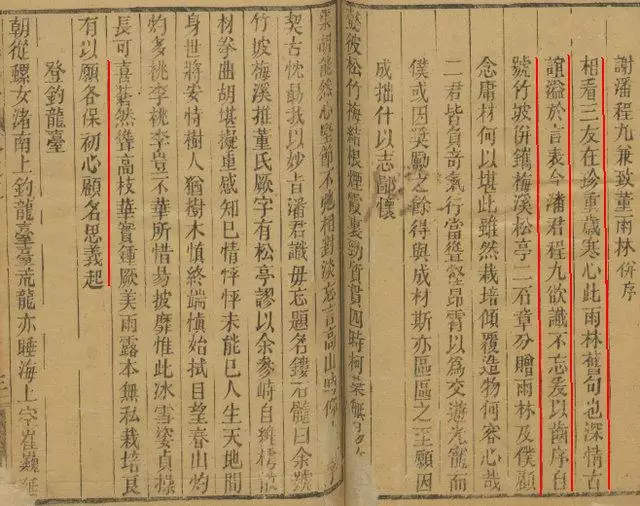 謝潘程九兼致董雨林併序
相看三友在珍重歲寒心此雨林舊句也深情古
誼溢於言表今潘君程九欲識不忘爰以齒序自
號竹坡併鐫梅溪松亭二石章分贈雨林及僕顧
念庸材何以堪此雖然栽培傾覆造物何容心哉
二君皆負奇氣行當聳壑昂霄以為交遊光寵而
僕或因奨勵之餘得與成材斯亦區區之至願因
成拙什以志鄙懷
彼松竹梅結根煙霞裏勁質貫四時柯葉無
胡能然心堅節不
相對淡忘言高山
契古忱勗我以妙旨潘君識毋忘題名鏤石髓曰余
竹坡梅溪推董氏厥字有松亭謬以余參峙自
材拳曲胡堪擬重感知巳情怦怦未能巳人生天地間
身世將安恃樹人猶樹木慎終端慎始拭目望春山灼
灼多桃李桃李豈不華所惜易披靡惟此冰雪姿貞操
長可喜蒼然聳高枝華實鍾厥美雨露本無私栽培良
有以願各保初心顧名思義起
登釣龍臺
朝從螺女渚南上釣龍臺臺荒龍亦睡海上